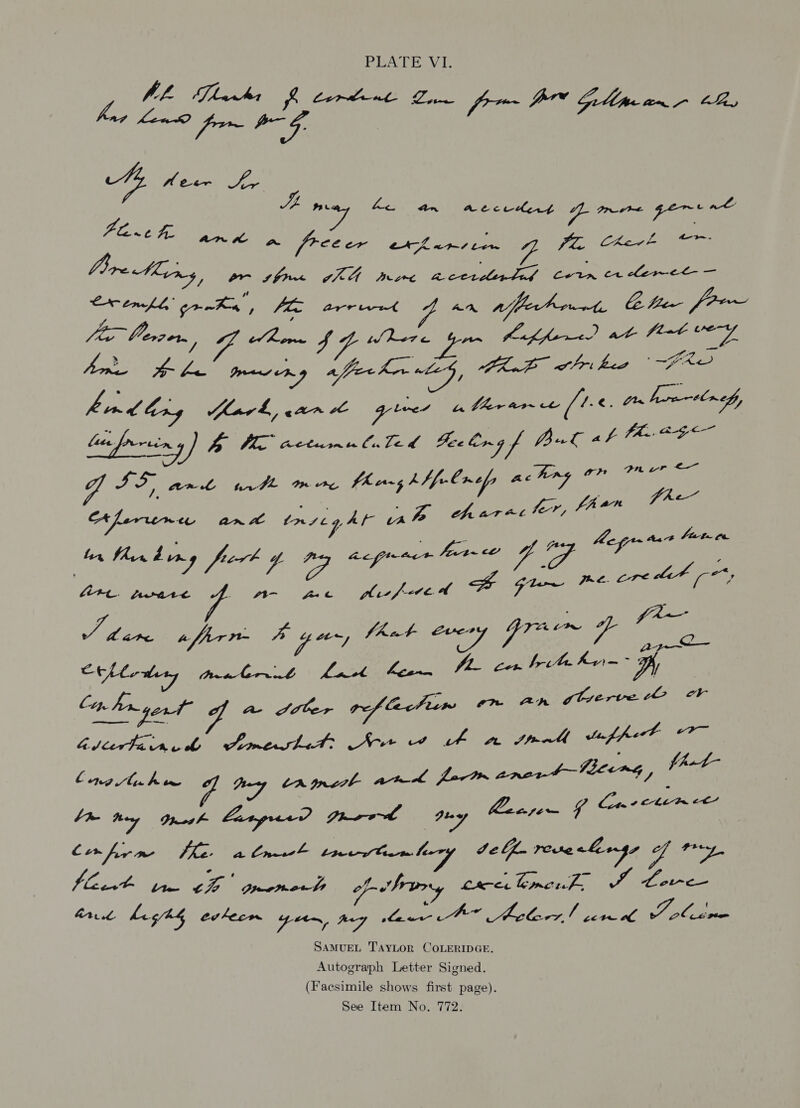 PLATE VI.
Thanks & cordial Love from Mrs Gillman who
has heard from Mr G.
My dear Sir
It may be an accident of more genial
Health and a freeer expansion of the Chest in
Breathing, or some still more accidental coincidence —
exempli gratiâ, the arrival of an affectionate Letter from
the Person, of whom & of where you happened at that very
time to be musing affectionately, that strikes the
kindling spark, and gives utterance (i.e. outwardness,
outering) to the accumulated Feeling / But at the age
of 55, and with more thoughtfulness acting on more
experience and insight into character, than the
far part of my acquaintance of my Acquaintance
are aware of or are disposed to give me credit for,
I dare affirm to you, that every grain of the
exploding material had been the contribution
Contingent of a sober reflection on an observed or
ascertained Somewhat. Nor is it a small support or
consolation of my inmost and permanent Being, that
in my most languid mood my Reason & Conscience
confirm the almost involuntary self-revealings of my
Heart in its moments of strong excitement. I love
and highly esteem you, my dear Mr and I
SAMUEL TAYLOR COLERIDGE.
Autograph Letter Signed.
(Facsimile shows first page).
See Item No. 772.